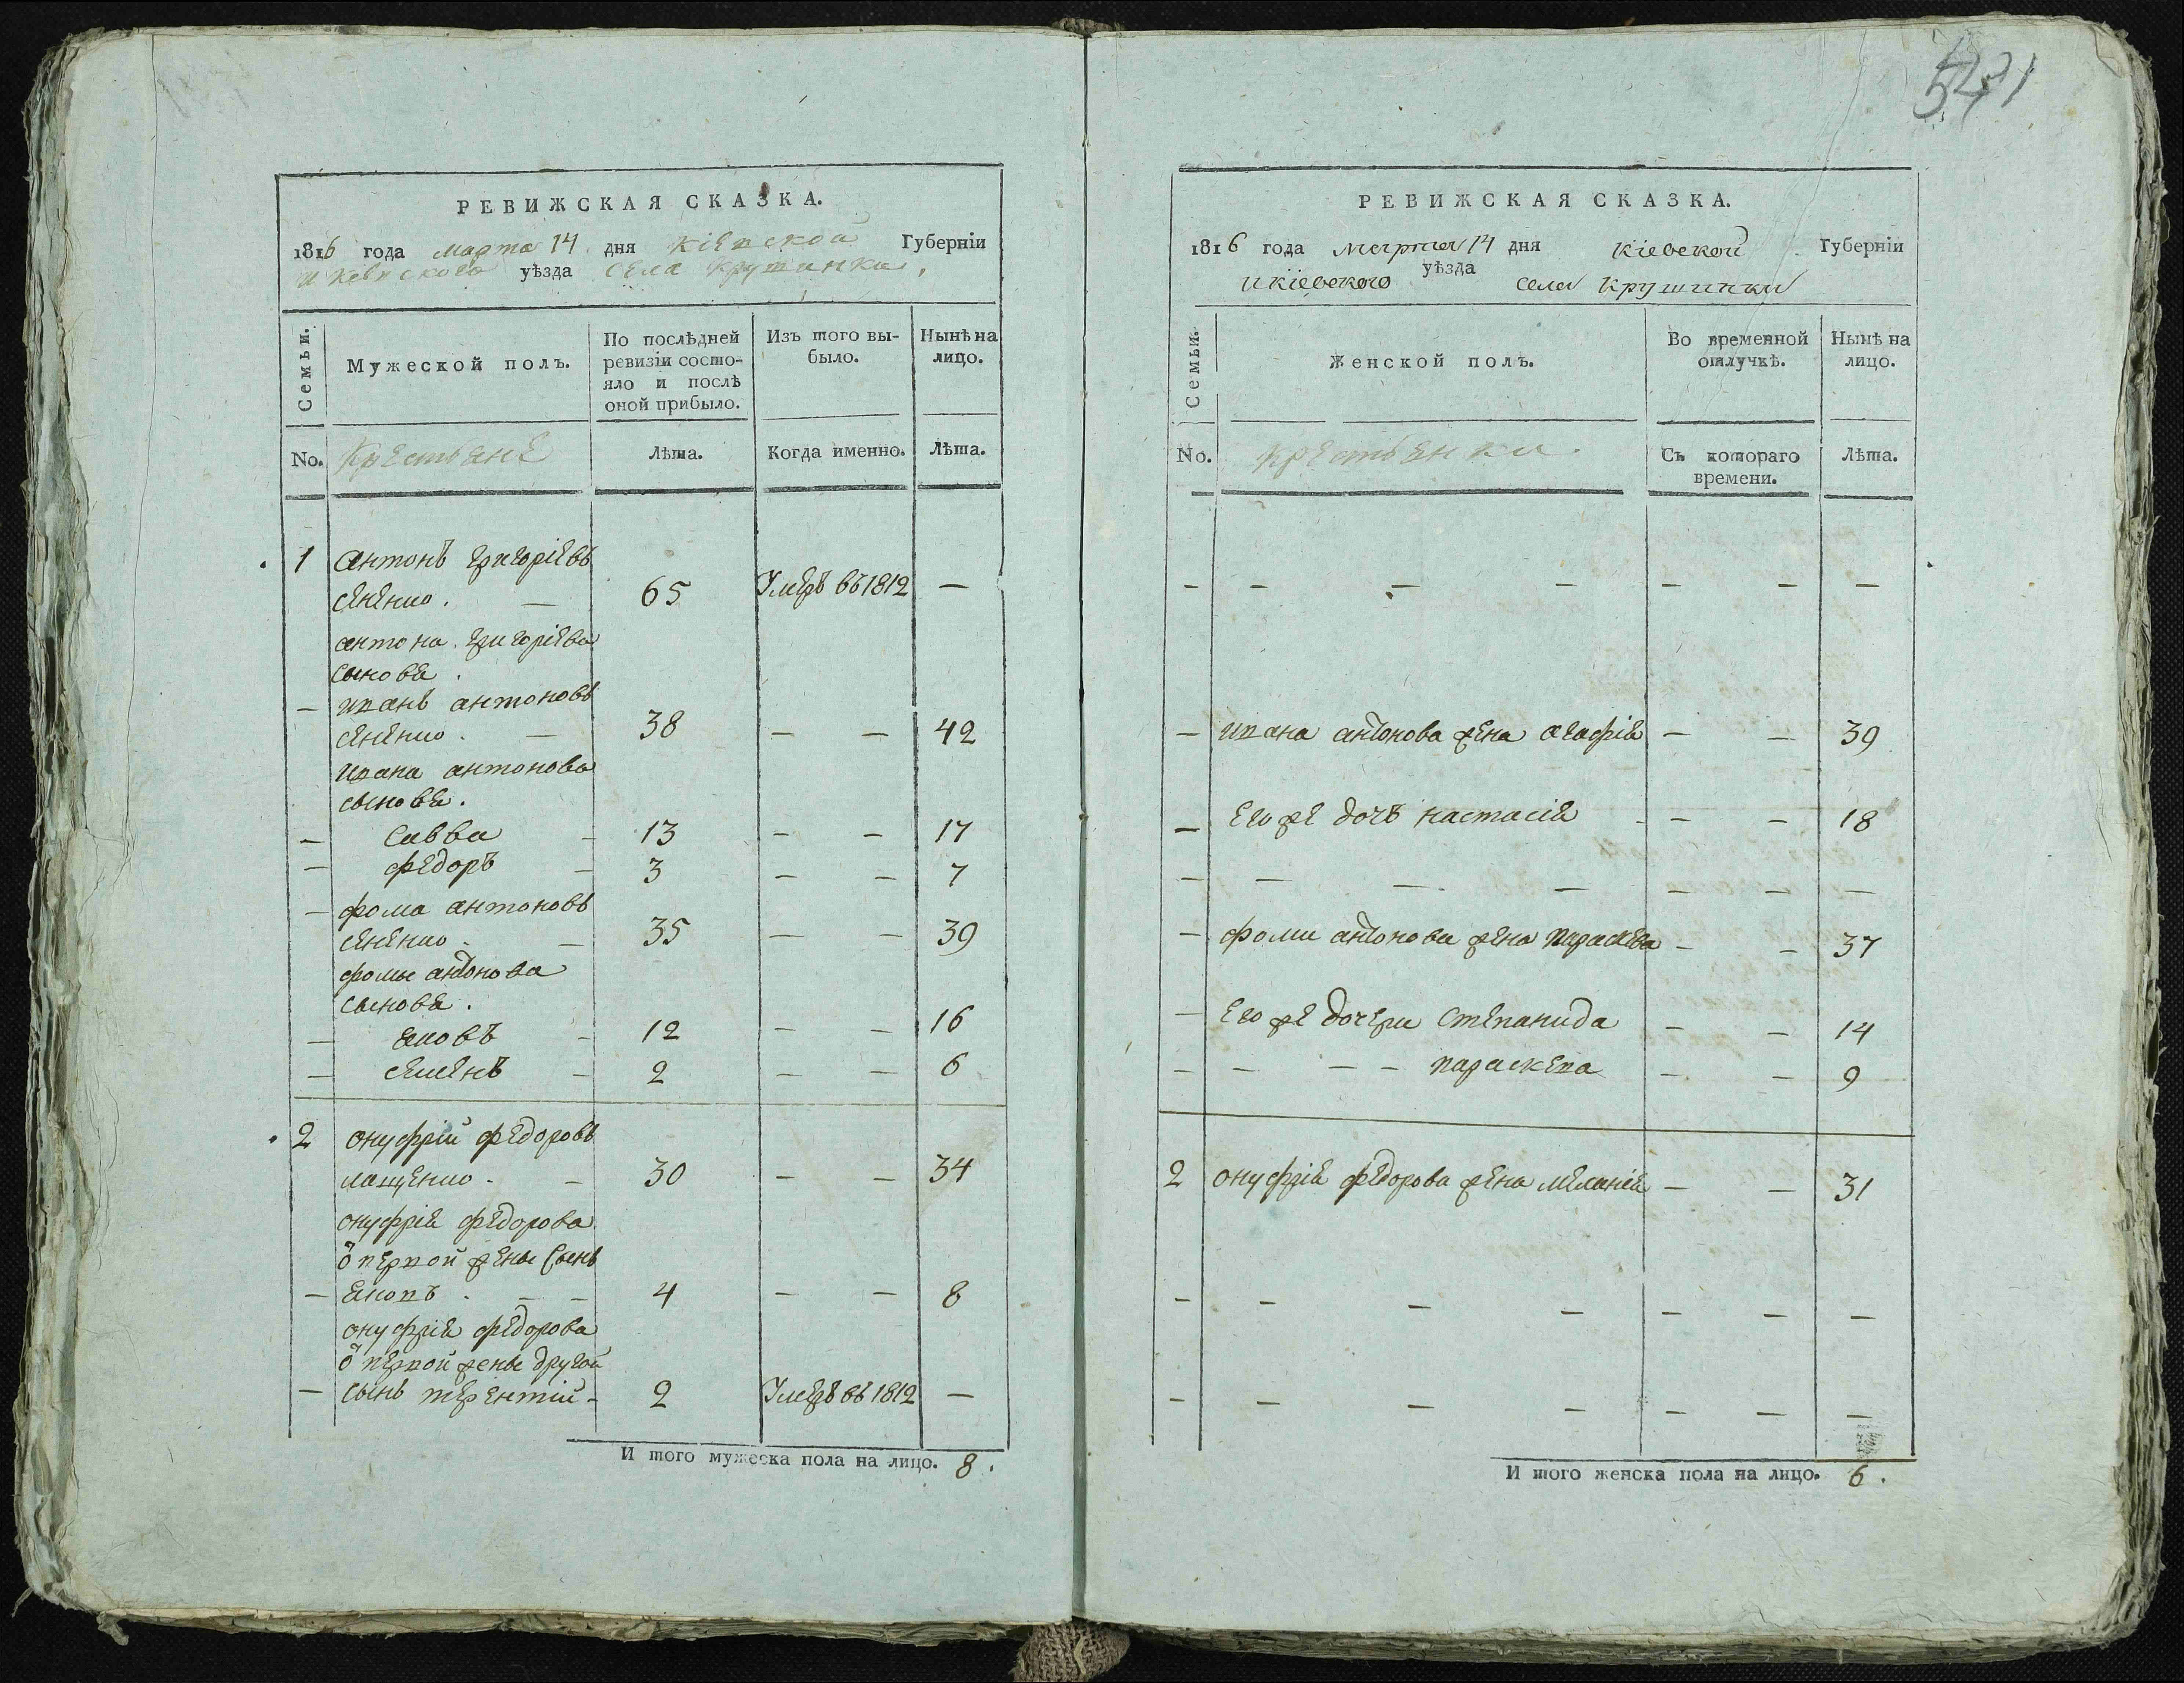 РЕВИЖСКАЯ СКАЗКА.
1816 года марта 14 дня Кіевской Губерніи
и Кіевского уѣзда села Крушинки.
Семьи.
Мужеской полъ.
По послѣдней ревизіи состояло и послѣ оной прибыло.
Изъ того выбыло.
Нынѣ на лицо.
No. Крестьяне
Лѣта.
Когда именно.
Лѣта.
1 антонъ григоріевъ
65 Умеръ въ 1812 —
антона григоріева
сыновя.
— иванъ антоновъ
38 — — 42
ивана антонова
сыновя.
— савва - 13 — — 17
— федоръ - 3 — — 7
— фома антоновъ
35 — — 39
фомы антонова
сыновя.
— яковъ - 12 — — 16
— семенъ - 2 — — 6
2 онуфрій федоровъ
лащенко - - 30 — — 34
онуфрія федорова
ѿ первой жены сынъ
— яковъ - 4 — — 8
онуфрія федорова
ѿ первой жены другой
— сынъ терентій - 2 Умеръ въ 1812 —
И того мужеска пола на лицо. 8.
541
РЕВИЖСКАЯ СКАЗКА.
1816 года Марта 14 дня Кіевской Губерніи
и Кіевского уѣзда села Крушинки
Семьи.
Женской полъ.
Во временной отлучкѣ.
Нынѣ на лицо.
No. крестьянки.
Съ котораго времени.
Лѣта.
— ивана антонова жена агафія — — 39
— его же дочъ настасія - — — 18
— фоми антонова жена параскева — — 37
— его же дочери степанида — — 14
— — — — параскева — — 9
2 онуфрія федорова жена меланія — — 31
И того женска пола на лицо. 6.